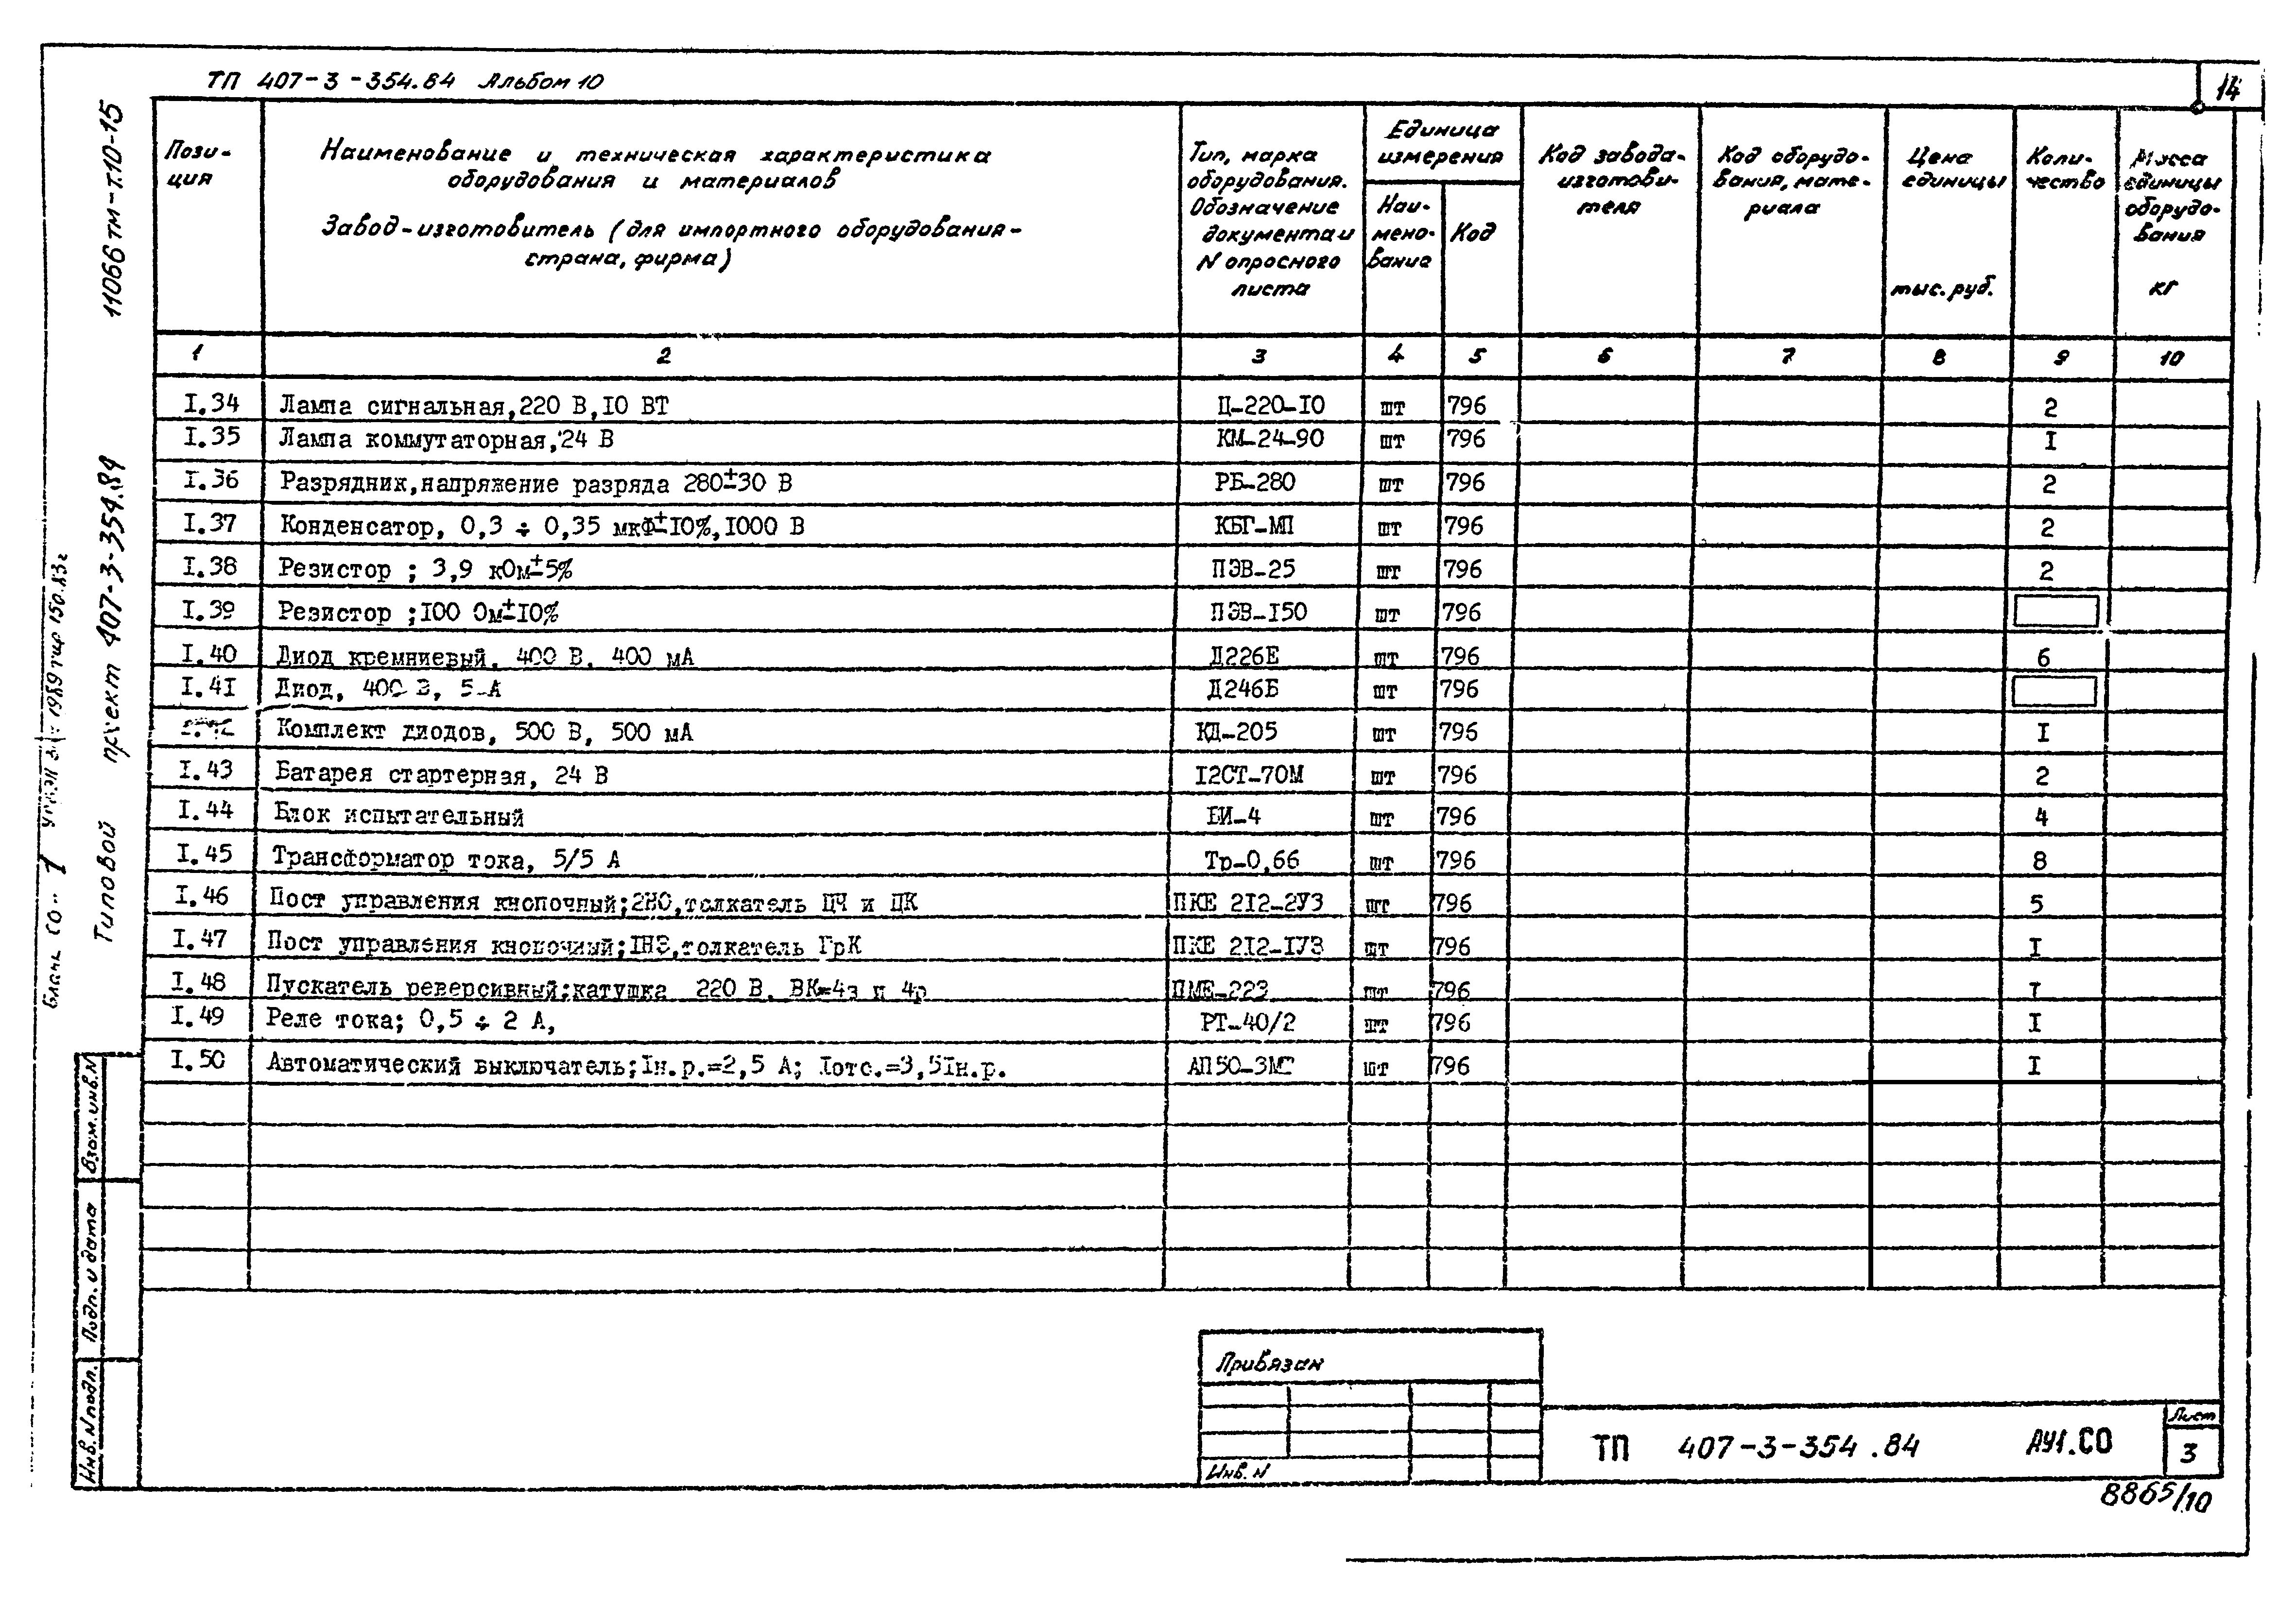 ТП 407-3-354.84 Альбом 10
14
Пози-
ция
Наименование и техническая характеристика
оборудования и материалов
Завод-изготовитель (для импортного оборудования-
страна, фирма)
Тип, марка
оборудования.
Обозначение
документа и
N опросного
листа
Единица
измерения
Наи-
мено-
вание
Код
Код завода-
изготови-
теля
Код оборудо-
вания, мате-
риала
Цена
единицы
тыс. руб.
Коли-
чество
Масса
единицы
оборудо-
вания
кг
1 2 3 4 5 6 7 8 9 10
I.34 Лампа сигнальная,220 В,I0 ВТ Ц-220-I0 шт 796 2
I.35 Лампа коммутаторная,24 В КМ-24-90 шт 796 I
I.36 Разрядник,напряжение разряда 280±30 В РБ-280 шт 796 2
I.37 Конденсатор, 0,3 ÷ 0,35 мкФ±I0%,I000 В КБГ-МП шт 796 2
I.38 Резистор ; 3,9 кОм±5% ПЭВ-25 шт 796 2
I.39 Резистор ;I00 Ом±I0% ПЭВ-I50 шт 796
I.40 Диод кремниевый, 400 В, 400 мА Д226Е шт 796 6
I.4I Диод, 400 В, 5 А Д246Б шт 796
Комплект диодов, 500 В, 500 мА КД-205 шт 796 I
I.43 Батарея стартерная, 24 В I2СТ-70М шт 796 2
I.44 Блок испытательный БИ-4 шт 796 4
I.45 Трансформатор тока, 5/5 А Тр-0,66 шт 796 8
I.46 Пост управления кнопочный;2НО,толкатель ЦЧ и ЦК ПКЕ 2I2-2У3 шт 796 5
I.47 Пост управления кнопочный;IНЗ,толкатель ГрК ПКЕ 2I2-IУ3 шт 796 I
I.48 Пускатель реверсивный;катушка 220 В, ВК=4з и 4р ПМЕ-223 шт 796 I
I.49 Реле тока; 0,5 ÷ 2 А, РТ-40/2 шт 796 I
I.50 Автоматический выключатель;Iн.р.=2,5 А; Iотс.=3,5Iн.р. АП50-3МТ шт 796 I
Привязан
Инв. N
ТП 407-3-354.84 АУ1.СО
Лист
3
8865/10
11066тм-т.10-15
Типовой проект 407-3-354.84
Бланк СО- 1 1989 тир 150.
Взам.инв.N
Подп. и дата
Инв. N подл.